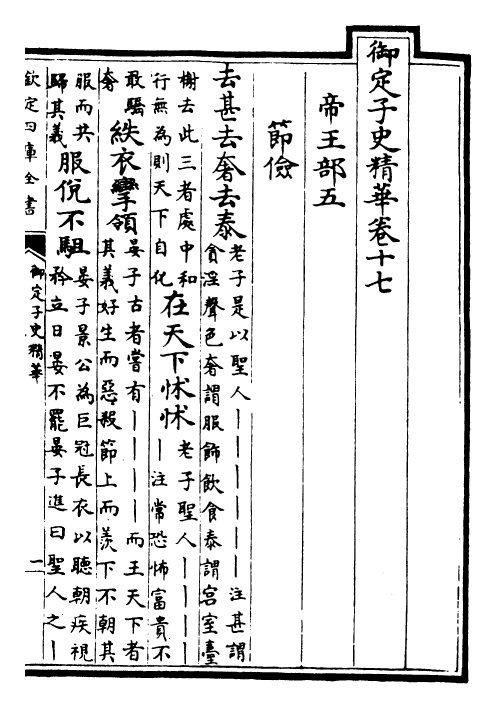 御定子史精華卷十七
帝王部五
節儉
去甚去奢去泰老子是以聖人｜｜｜｜｜｜注甚謂
貪淫聲色奢謂服飾飲食泰謂宮室臺
榭去此三者處中和
行無為則天下自化在天下怵怵老子聖人｜｜｜｜
｜注常恐怖富貴不
敢驕
奢紩衣攣領晏子古者嘗有｜｜｜｜而王天下者
其義好生而惡殺節上而羨下不朝其
服而共
歸其義服侻不駔晏子景公為巨冠長衣以聽朝疾視
矜立日晏不罷晏子進曰聖人之｜
欽定四庫全書
御定子史精華
一